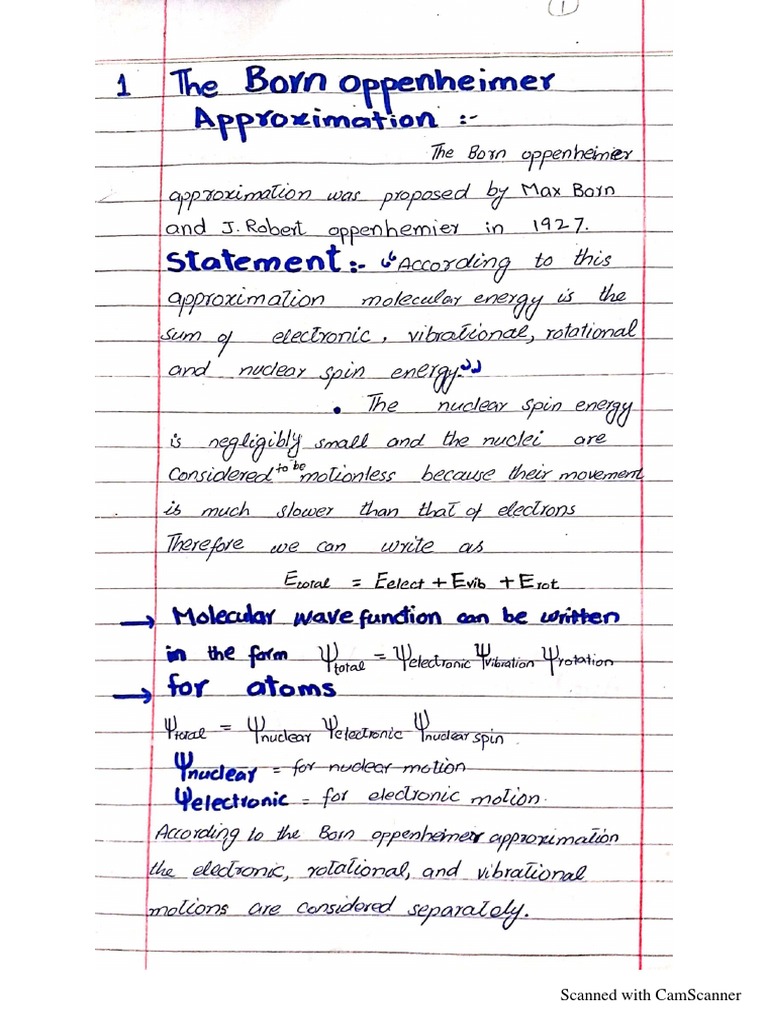 1
1 The Born oppenheimer
Approximation :-
The Born oppenheimer
approximation was proposed by Max Born
and J. Robert oppenhemier in 1927.
Statement:- "According to this
approximation molecular energy is the
sum of electronic, vibrational, rotational
and nuclear spin energy."
• The nuclear spin energy
is negligibly small and the nuclei are
Considered to be motionless because their movement
is much slower than that of electrons
Therefore we can write as
Etotal = Eelect + Evib + Erot
→ Molecular wave function can be written
in the form Ψtotal = Ψelectronic Ψvibration Ψrotation
→ for atoms
Ψtotal = Ψnuclear Ψelectronic Ψnuclear spin
Ψnuclear = for nuclear motion
Ψelectronic = for electronic motion.
According to the Born oppenheimer approximation
the electronic, rotational, and vibrational
motions are considered separately.
Scanned with CamScanner